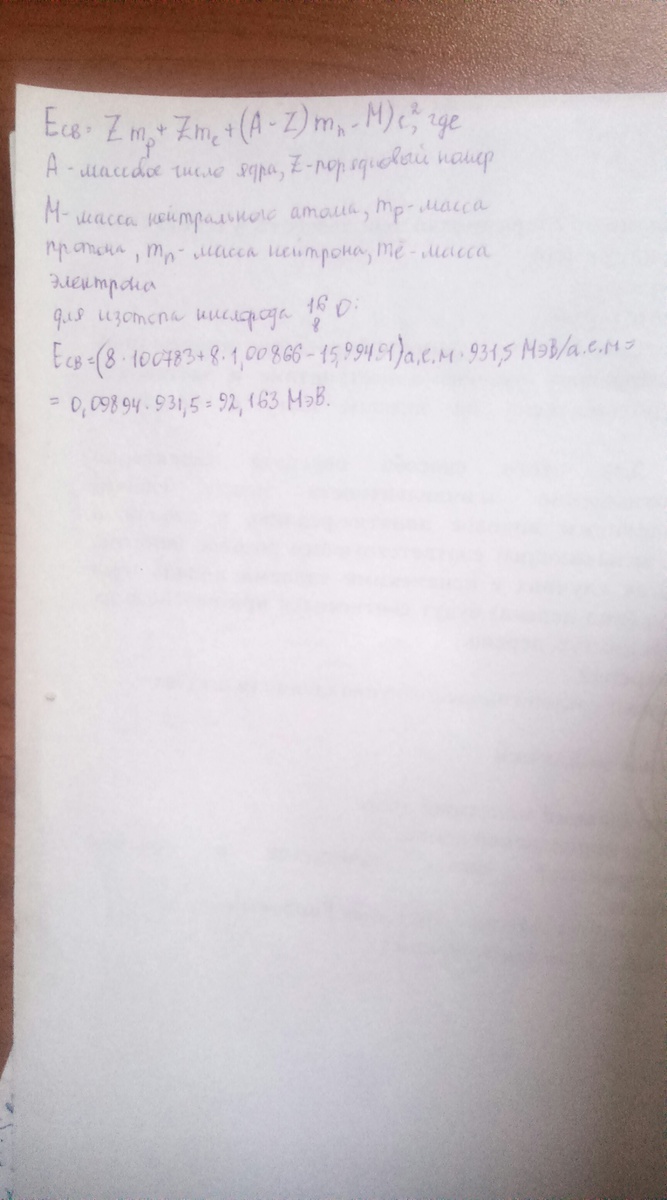 Eсв = Zmp + Zme + (A - Z)mn - M)c², где
A - массовое число ядра, Z - порядковый номер
M - масса нейтрального атома, mp - масса
протона, mn - масса нейтрона, mē - масса
электрона
для изотопа кислорода ¹⁶₈O:
Eсв = (8·100783 + 8·1,00866 - 15,99491) а.е.м · 931,5 МэВ/а.е.м =
= 0,09894·931,5 = 92,163 МэВ.